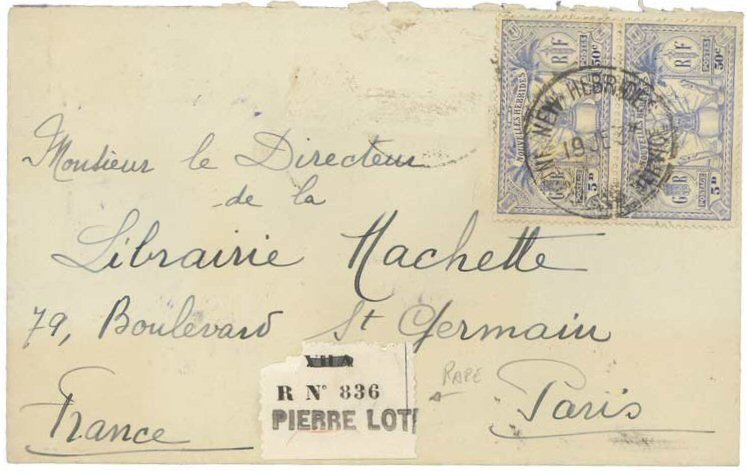 RF
50c
POSTES
NOUVELLES HÉBRIDES
GR
5D
POSTAGE
RF
50c
POSTES
NOUVELLES HÉBRIDES
GR
5D
POSTAGE
NEW HEBRIDES
19 JE
Monsieur le Directeur
de la
Librairie Hachette
79, Boulevard St Germain
Paris
France
VILA
R N° 836
PIERRE LOTI
RARE